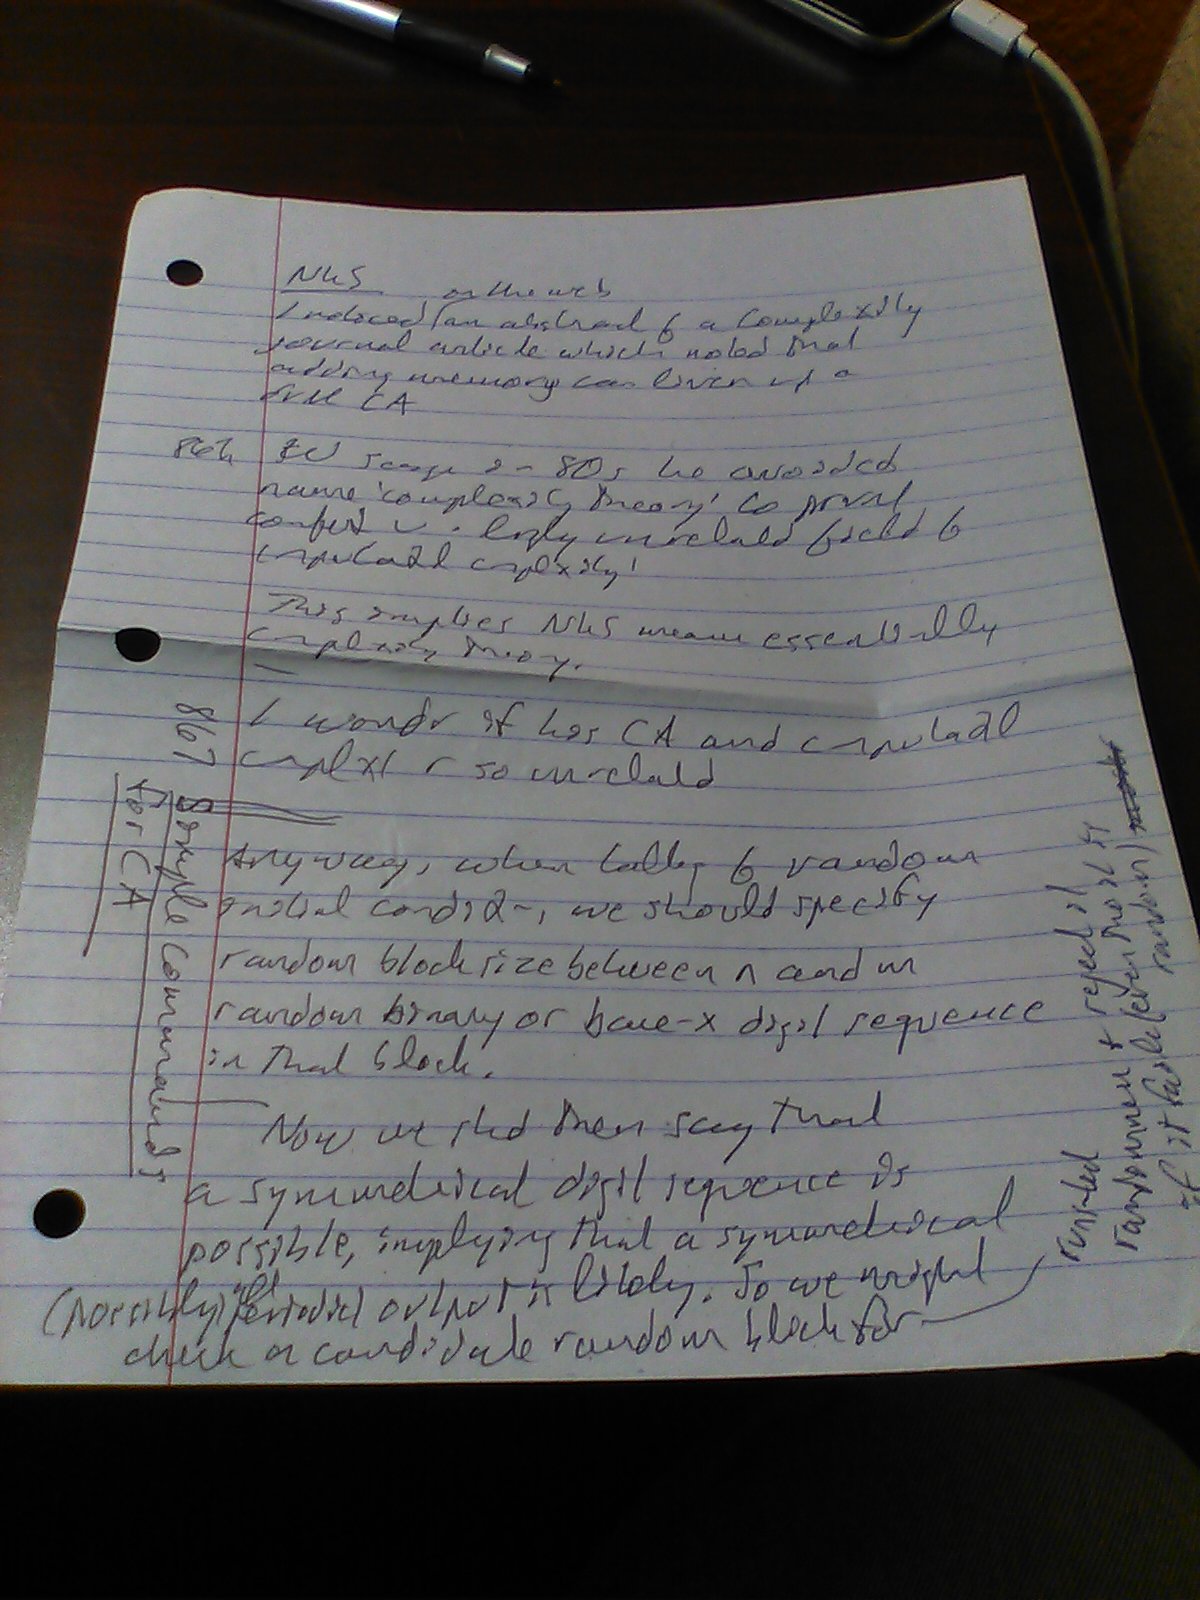 NKS
on the web
I noticed an abstract of a Complexity
journal article which noted that
adding memory can liven up a
dull CA
862 SW says in 80s he avoided
name 'complexity theory' to prevent
w. lrgly unrelatd field of
cmputatl cmplxity'
This implies NKS means essentially
cmplexity theory.
867 I wondr if his CA and cmputatl
cmplxt r so unrelatd
Anyway, when talkg of random
initial conditn, we should specify
random block size between n and m
random binary or base-x digit sequence
in that block.
Now we shd then say that
a symmetrical digit sequence is
possible, implying that a symmetrical
(possibly periodic) output is likely. So we might
check a candidate random block for
runs-ted
randomness & reject it
if it fails (even tho it is
random)
Simple Commands
for CA